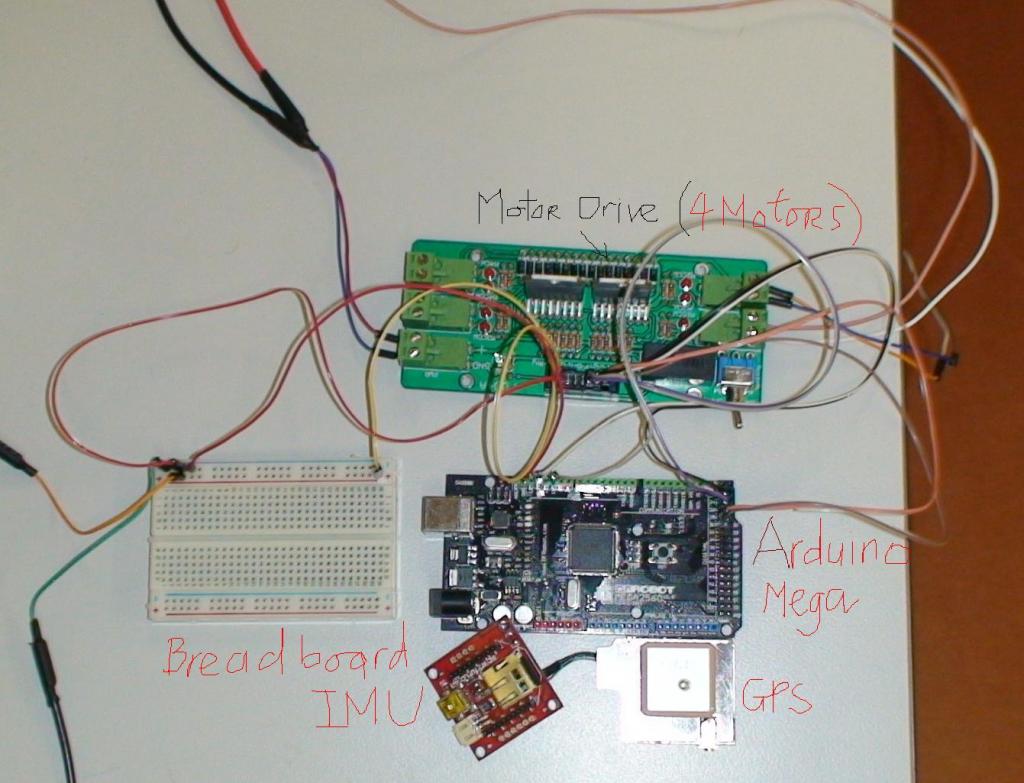 Motor Drive (4 Motors)
Arduino
Mega
Bread board
IMU
GPS